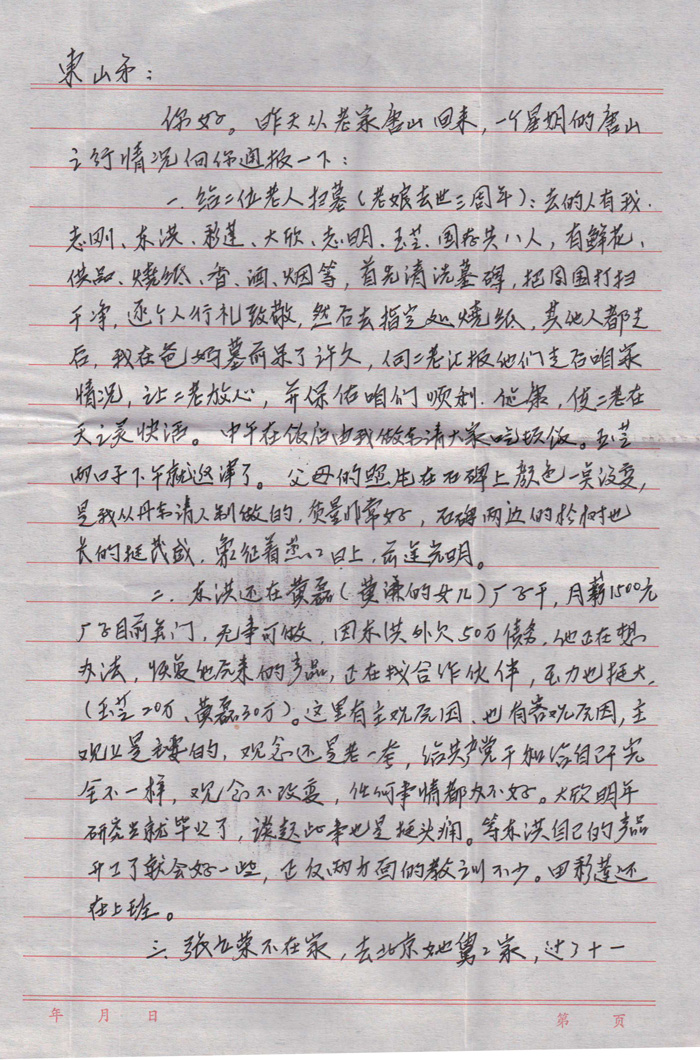 东山弟：
你好。昨天从老家唐山回来，一个星期的唐山
之行情况向你通报一下：
一. 给二位老人扫墓（老娘去世三周年）：去的人有我.
志刚、东洪、彩莲、大欣、志明、玉芝、国存共八人，有鲜花、
供品、烧纸、香、酒、烟等，首先清洗墓碑，把周围打扫
干净，逐个人行礼致敬，然后去指定处烧纸，其他人都走
后，我在爸妈墓前呆了许久，向二老汇报他们走后咱家
情况，让二老放心，并保佑咱们顺利.健康，使二老在
天之灵快活。中午在饭店由我做东请大家吃顿饭。玉芝
两口子下午就返津了。父母的照片在石碑上颜色一点没变，
是我从丹东请人制做的，质量非常好，石碑两边的松树也
长的挺茂盛，象征着蒸蒸日上，前途光明。
二. 东洪还在黄磊（黄漆的女儿）厂子干，月薪1500元
厂子目前关门，无事可做，因东洪外欠50万债务，他正在想
办法，恢复他原来的产品，正在找合作伙伴，压力也挺大，
（玉芝20万、黄磊30万）。这里有主观原因、也有客观原因，主
观上是主要的，观念还是老一套，给共产党干和给自己干完
全不一样，观念不改变，任何事情都办不好。大欣明年
研究生就毕业了，谈起此事也是挺头痛。等东洪自己的产品
开工了就会好一些，正反两方面的教训不少。田彩莲还
在上班。
三. 张立荣不在家，去北京她舅舅家，过了十一
年 月 日 第 页